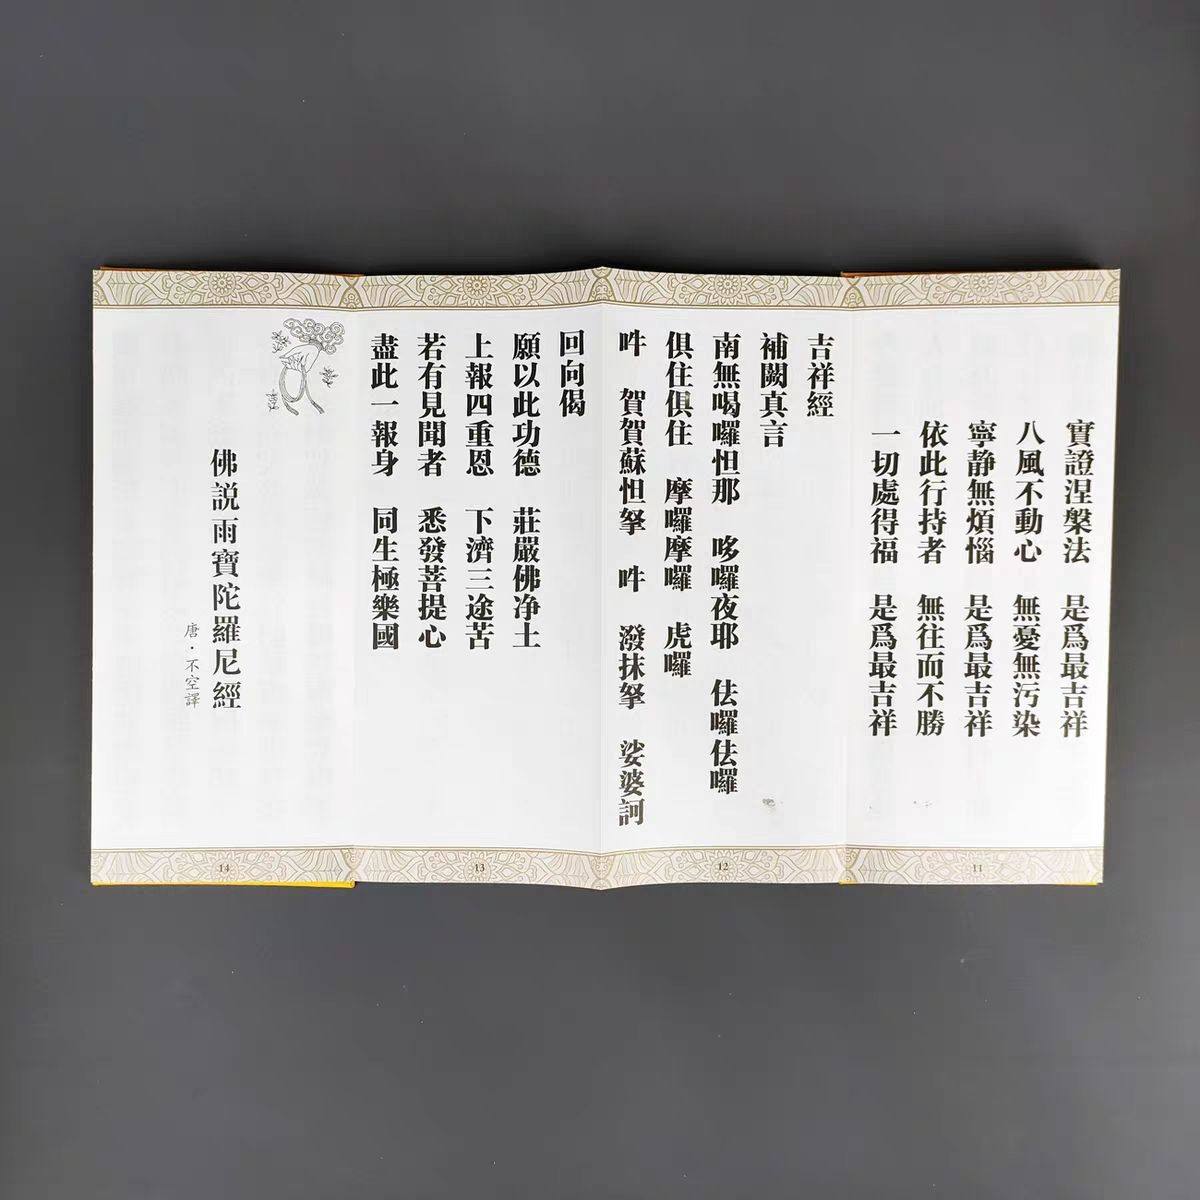 實證涅槃法 是爲最吉祥
八風不動心 無憂無污染
寧静無煩惱 是爲最吉祥
依此行持者 無往而不勝
一切處得福 是爲最吉祥
11
吉祥經
補闕真言
南無喝囉怛那 哆囉夜耶 佉囉佉囉
俱住俱住 摩囉摩囉 虎囉
吽 賀賀蘇怛拏 吽 潑抹拏 娑婆訶
12
回向偈
願以此功德 莊嚴佛净土
上報四重恩 下濟三途苦
若有見聞者 悉發菩提心
盡此一報身 同生極樂國
13
佛説雨寶陀羅尼經
唐·不空譯
14